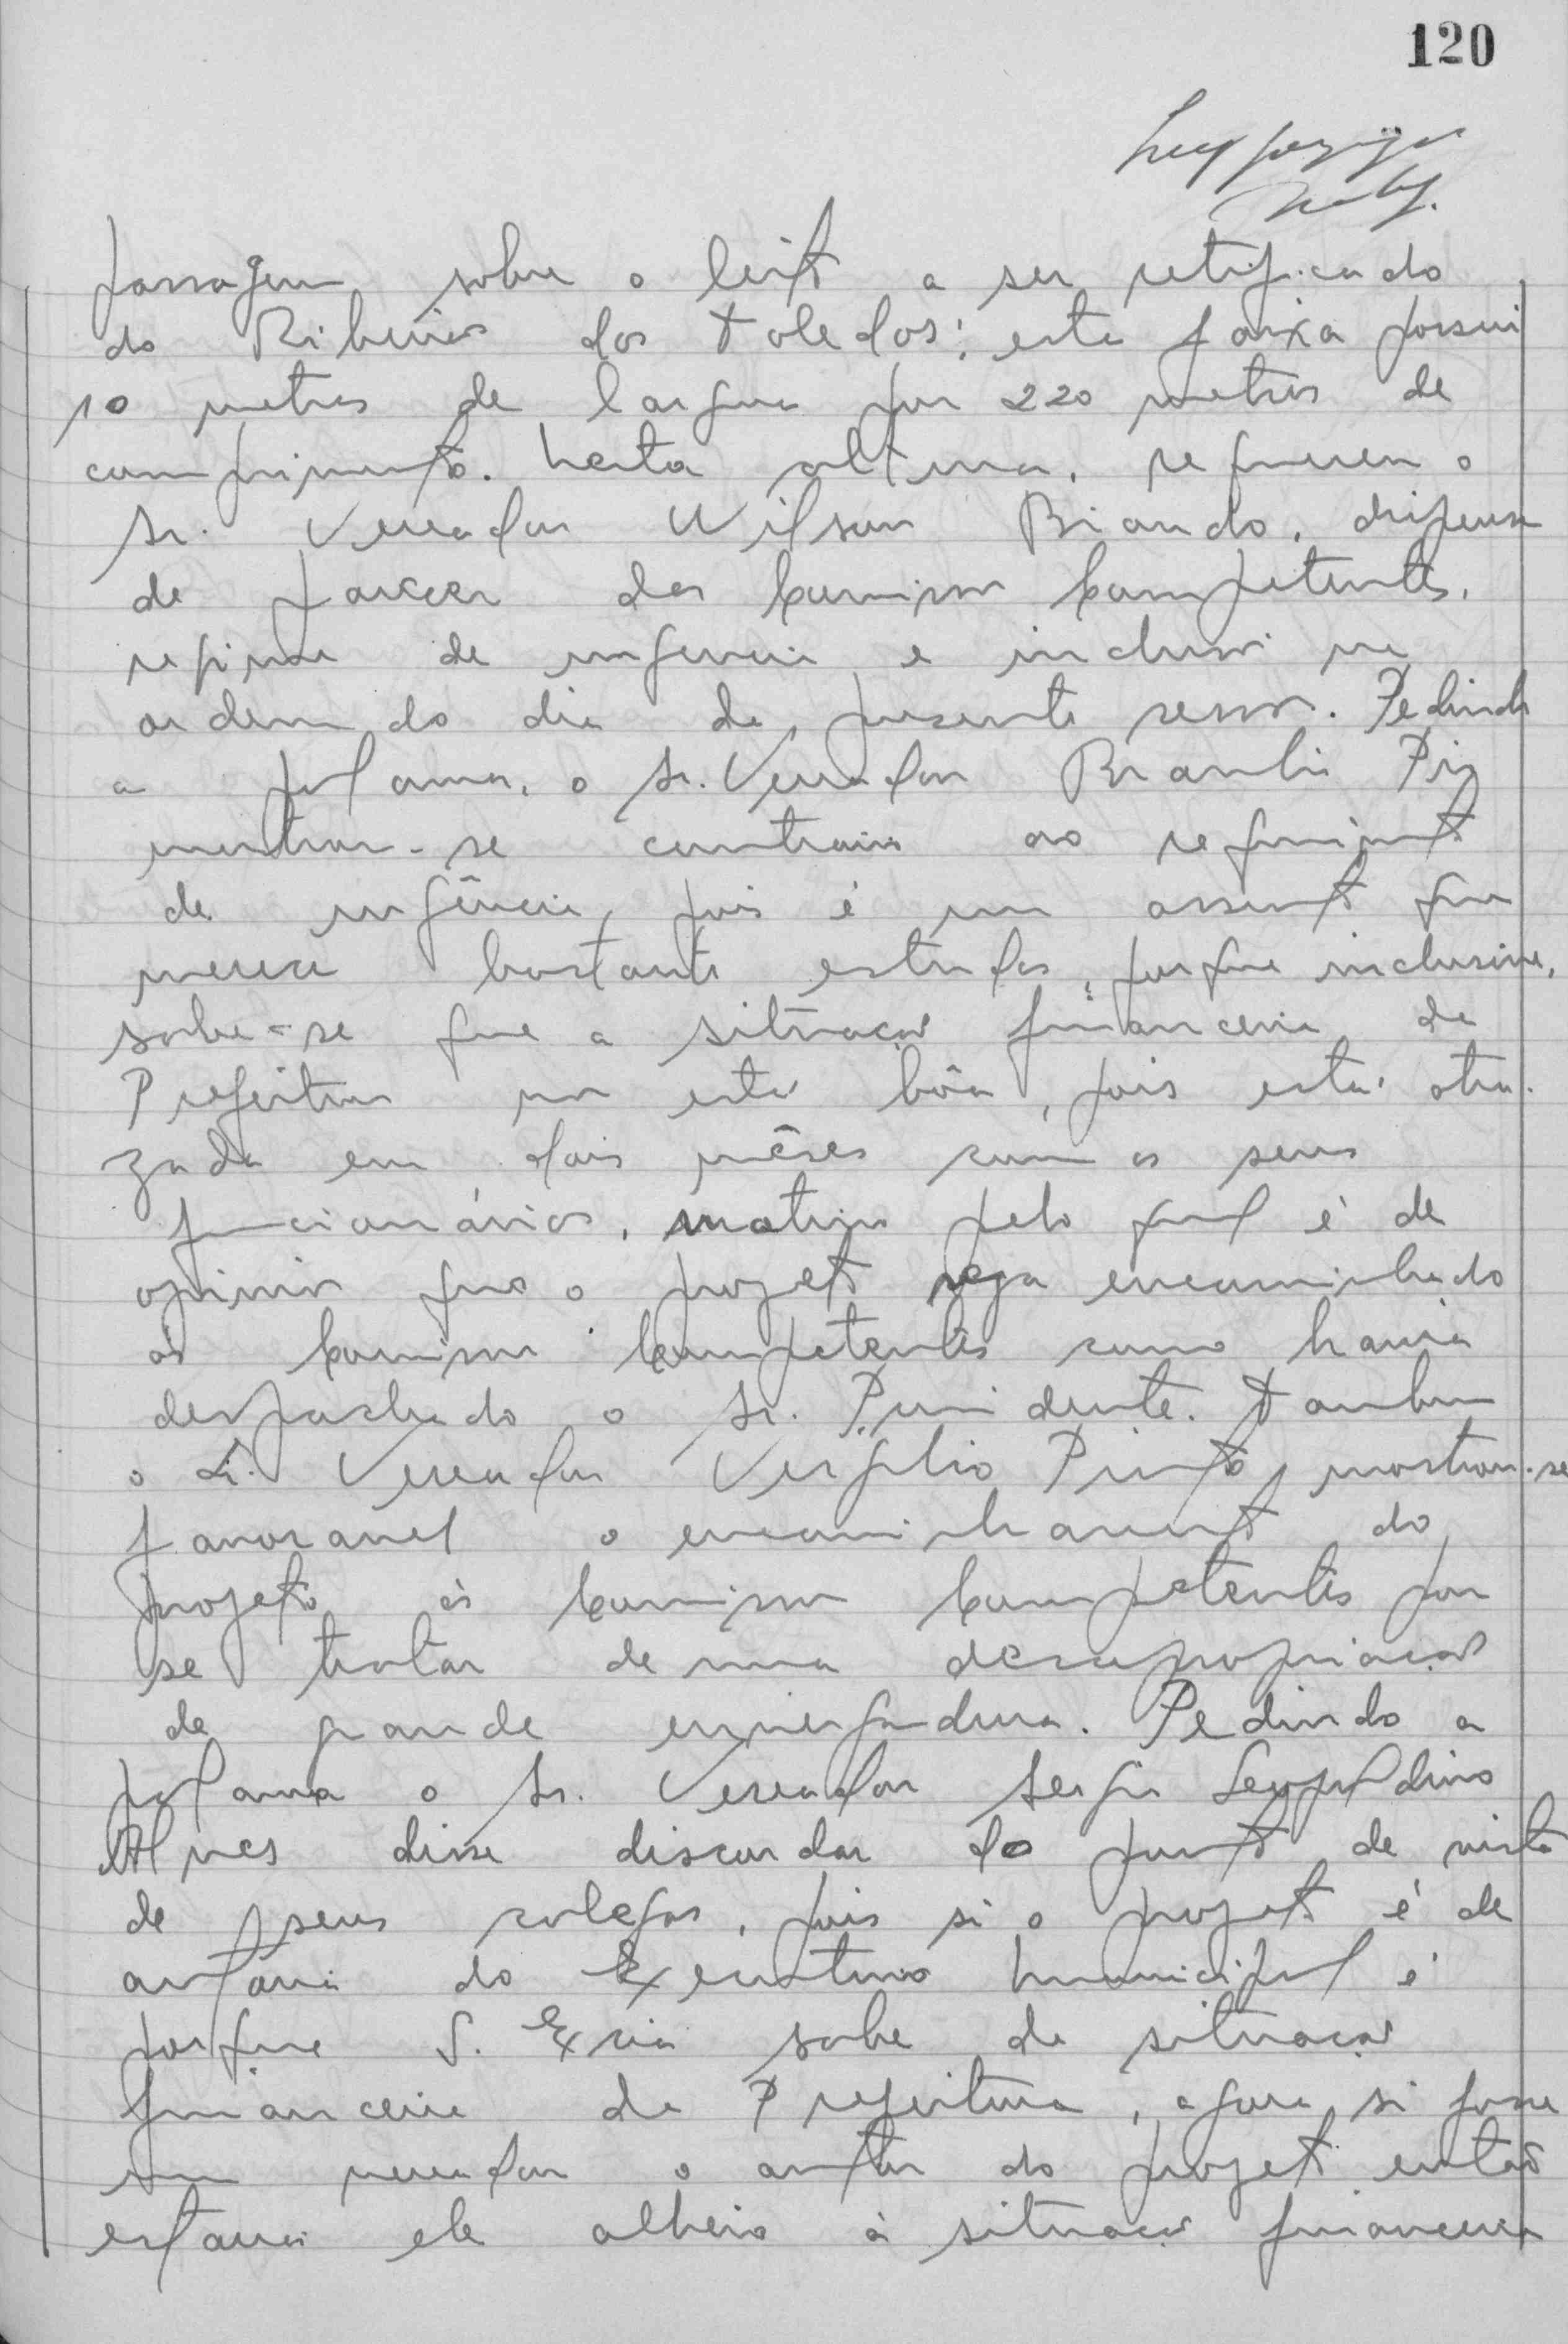 120
passagem sobre o leito a ser retificado
do Ribeirão dos Toledos; esta faixa possui
10 metros de largura por 220 metros de
comprimento. Nesta altura, requereu o
Sr. Vereador Wilson Biando, dispensa
de parecer das Comissões Competentes,
regime de urgencia e inclusão na
ordem do dia da presente sessão. Pedindo
a palavra, o Sr. Vereador Braulio Pio
mostrou-se contrario ao requerimento
de urgência, pois é um assunto que
merece bastante estudos, porque inclusive,
sabe-se que a situação financeira da
Prefeitura não está bôa, pois está atra-
zada em dois mêses com os seus
funcionários, motivo pelo qual é de
opinião que o projeto seja encaminhado
às Comissões Competentes como havia
despachado o Sr. Presidente. Tambem
o Sr. Vereador Virgilio Pinto, mostrou-se
favoravel o encaminhamento do
projeto às Comissões Competentes por
se tratar de uma desapropriação
de grande envergadura. Pedindo a
palavra o Sr. Vereador Sergio Leopoldino
Alves disse discordar do ponto de vista
de seus colegas, pois si o projeto é de
autoria do Executivo Municipal é
porque S. Excia sabe da situação
financeira da Prefeitura, agora, si fosse
um vereador o autor do projeto então
estaria ele alheio à situação financeira